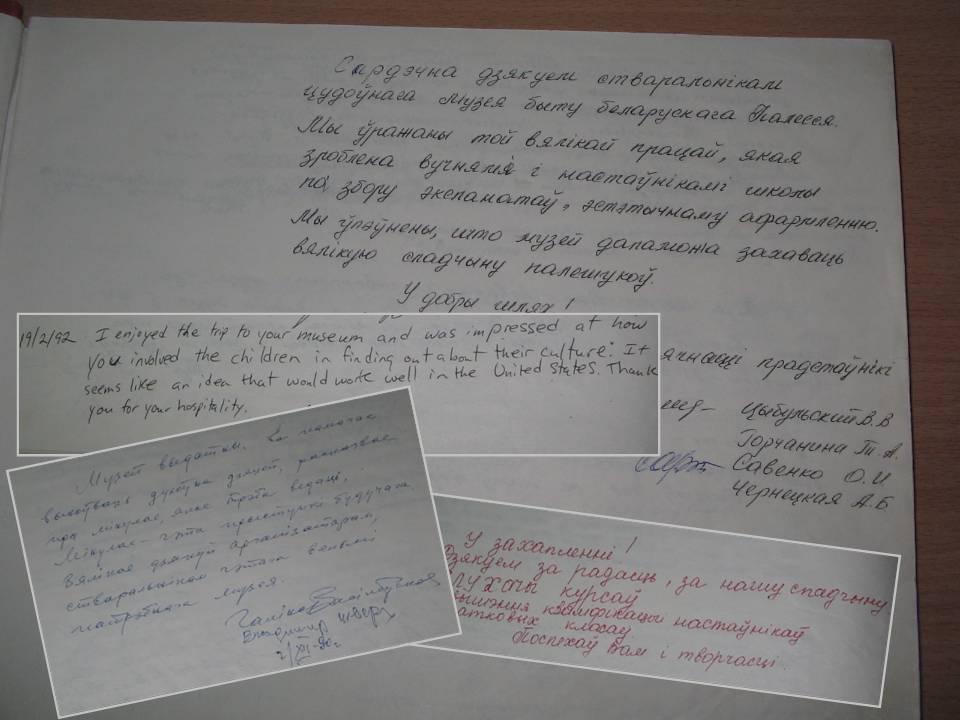 Сардэчна дзякуем стваральнікам
цудоўнага музея быту беларускага Палесся.
Мы ўражаны той вялікай працай, якая
зроблена вучнямі і настаўнікамі школы
па збору экспанатаў, эстэтычнаму афармленню.
Мы ўпэўнены, што музей дапаможа захаваць
вялікую спадчыну палешукоў.
У добры шлях!
прадстаўнікі
Цыбульский В.В
Горчанина Т.А.
Савенко О.И
Чернецкая А.Б
19/2/92 I enjoyed the trip to your museum and was impressed at how
you involved the children in finding out about their culture. It
seems like an idea that would work well in the United States. Thank
you for your hospitality.
Музей выдатны. Ён памагае
выхоўваць дзяцей, расказвае
пра мінулае, якое трэба ведаць.
Мінулае - гэта будучага
Вялікая арганізатарам,
стваральнікам гэтага вельмі
патрэбнага музея.
Галіна
Уладзімір
У захапленні!
Дзякуем за радасць, за нашу спадчыну
курсаў
кваліфікацыі настаўнікаў
класаў
Поспехаў Вам і творчасці